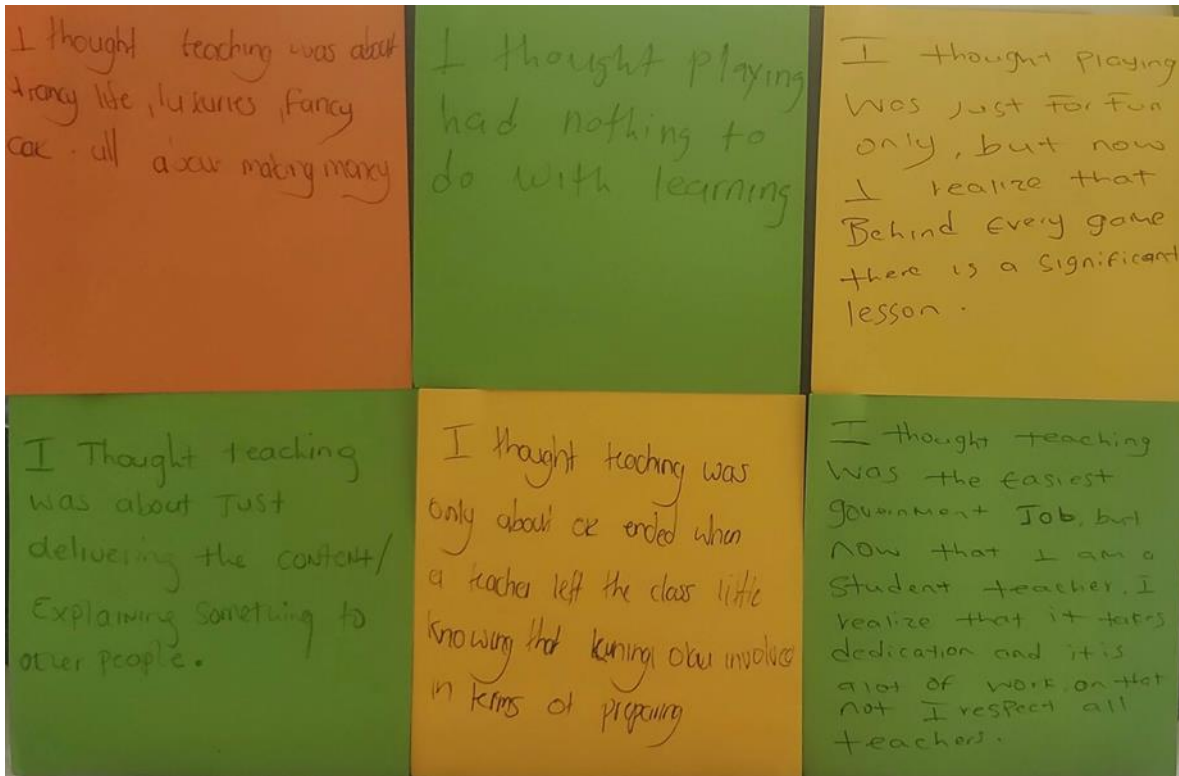 I thought teaching was about
life, luxuries, fancy
all about making money
I thought playing
had nothing to
do with learning
I thought playing
was just for fun
only, but now
I realize that
Behind Every game
there is a significant
lesson.
I Thought teaching
was about Just
delivering the content/
Explaining something to
other people.
I thought teaching was
only about or ended when
a teacher left the class little
knowing that involved
in terms of preparing
I thought teaching
was the easiest
government Job, but
now that I am a
Student teacher, I
realize that it takes
dedication and it is
alot of work, on that
not I respect all
teachers.